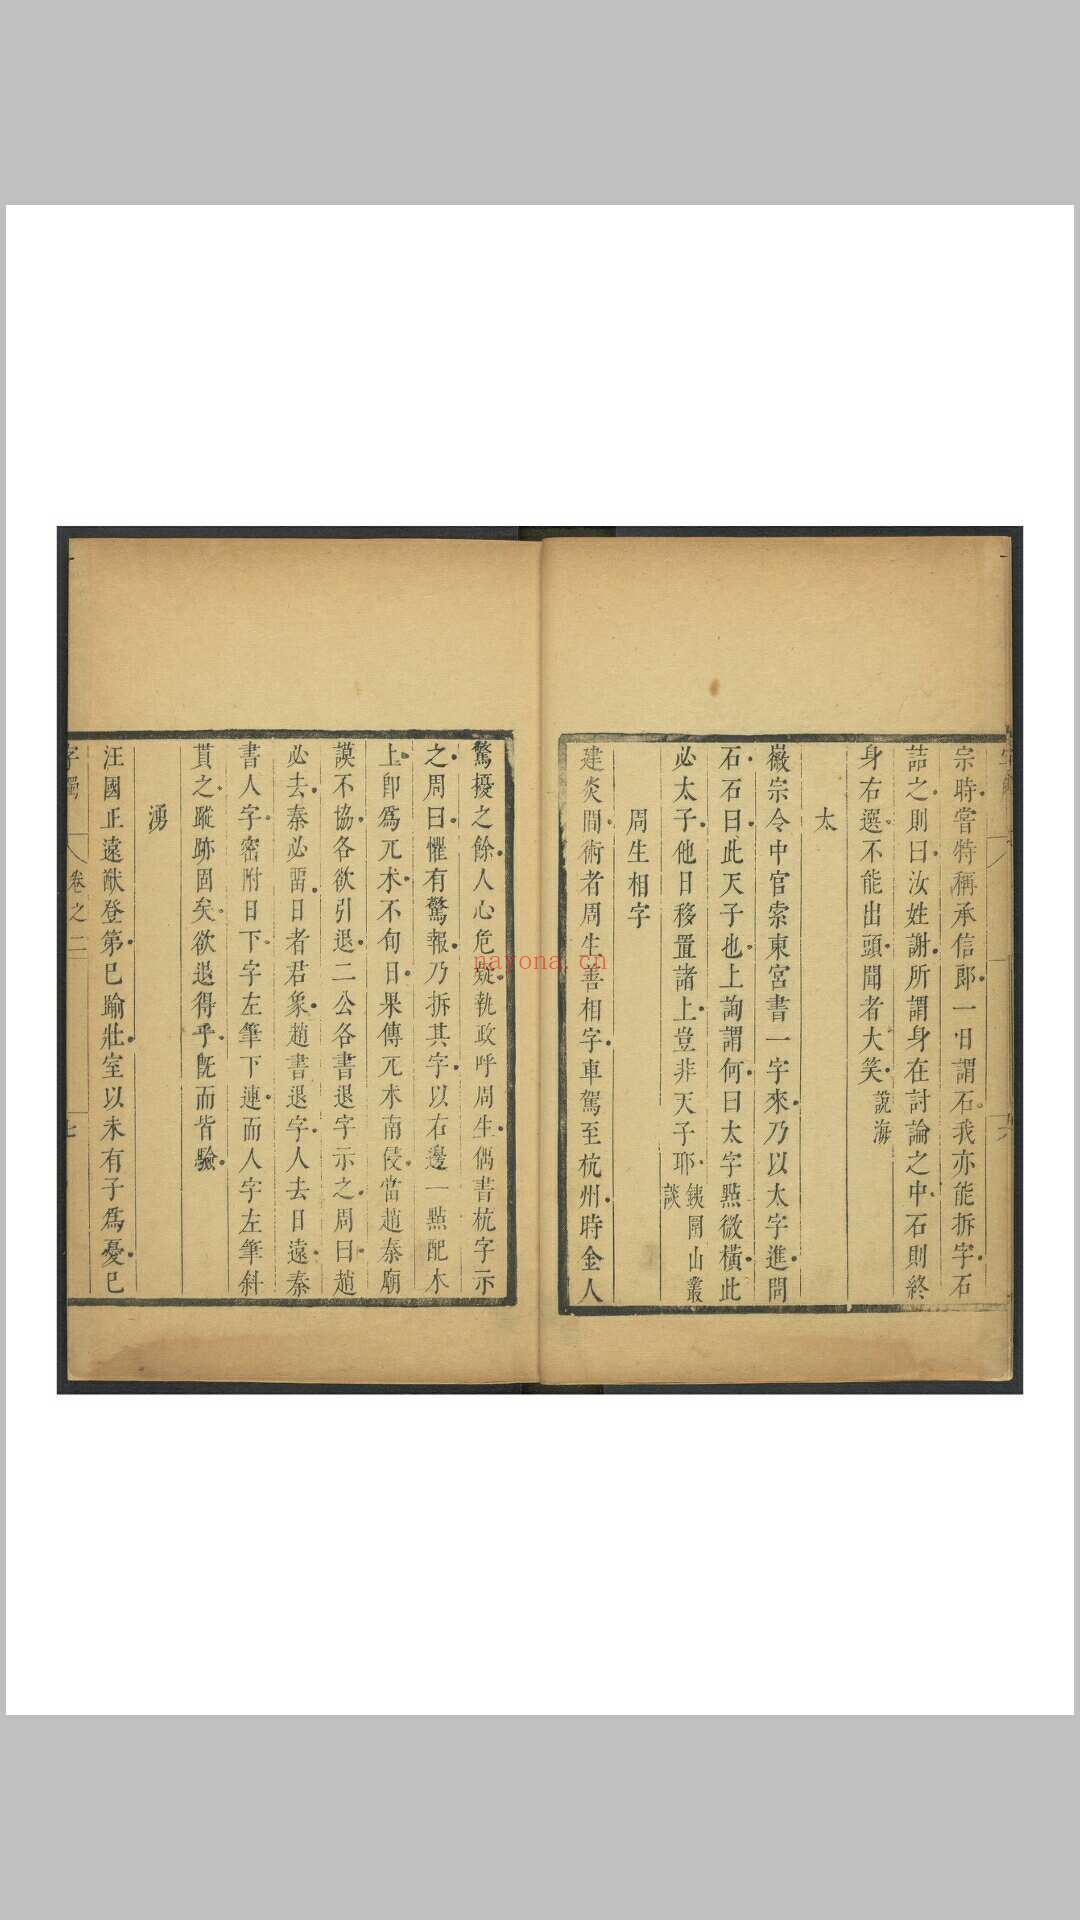 宗時嘗特稱承信郎一日謂石我亦能拆字石
詰之則曰汝姓謝所謂身在討論之中石則終
身右選不能出頭聞者大笑說海
太
徽宗令中官索東宮書一字來乃以太字進問
石石曰此天子也上詢謂何曰太字點微橫此
必太子他日移置諸上豈非天子耶鐵圍山叢
談
周生相字
建炎間術者周生善相字車駕至杭州時金人
驚擾之餘人心危疑執政呼周生偶書杭字示
之周曰懼有驚報乃拆其字以右邊一點配木
上卽爲兀朮不旬日果傳兀朮南侵當趙秦廟
謨不協各欲引退二公各書退字示之周曰趙
必去秦必畱日者君象趙書退字人去日遠秦
書人字密附日下字左筆下連而人字左筆斜
貫之蹤跡固矣欲退得乎旣而皆驗
湧
汪國正遠猷登第已踰壯室以未有子爲憂已
卷之二
七
nayona.cn